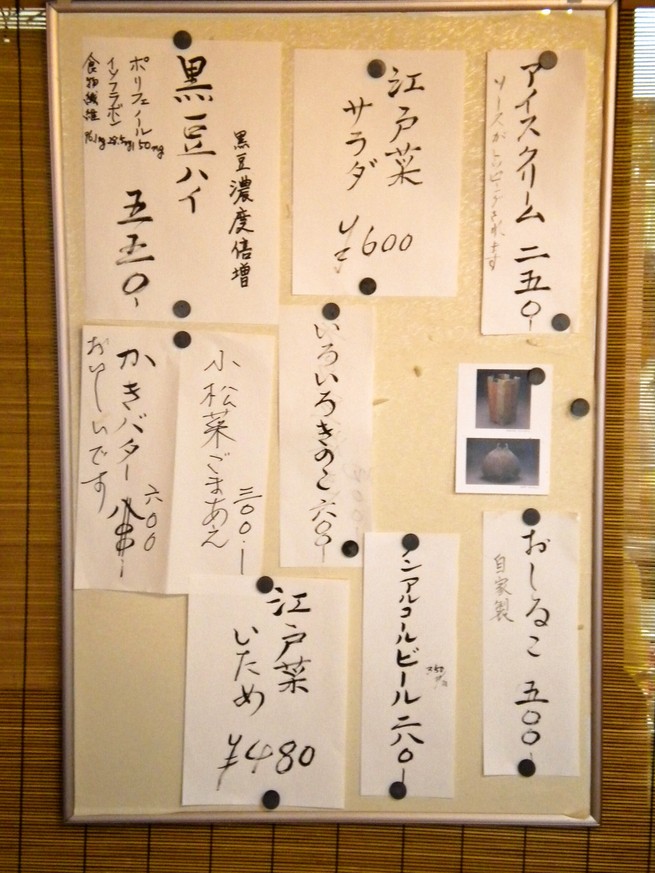 アイスクリーム 二五〇-
ソースがトッピングされます
江戸菜
サラダ
¥600
黒豆濃度倍増
黒豆ハイ
五五〇-
ポリフェノール 150mg
イソフラボン 28.5mg
食物繊維
いろいろきのこ 六〇〇-
小松菜ごまあえ
三〇〇-
かきバター
六〇〇
おいしいです
おしるこ 五〇〇-
自家製
ノンアルコールビール 二八〇-
江戸菜
いため
¥480